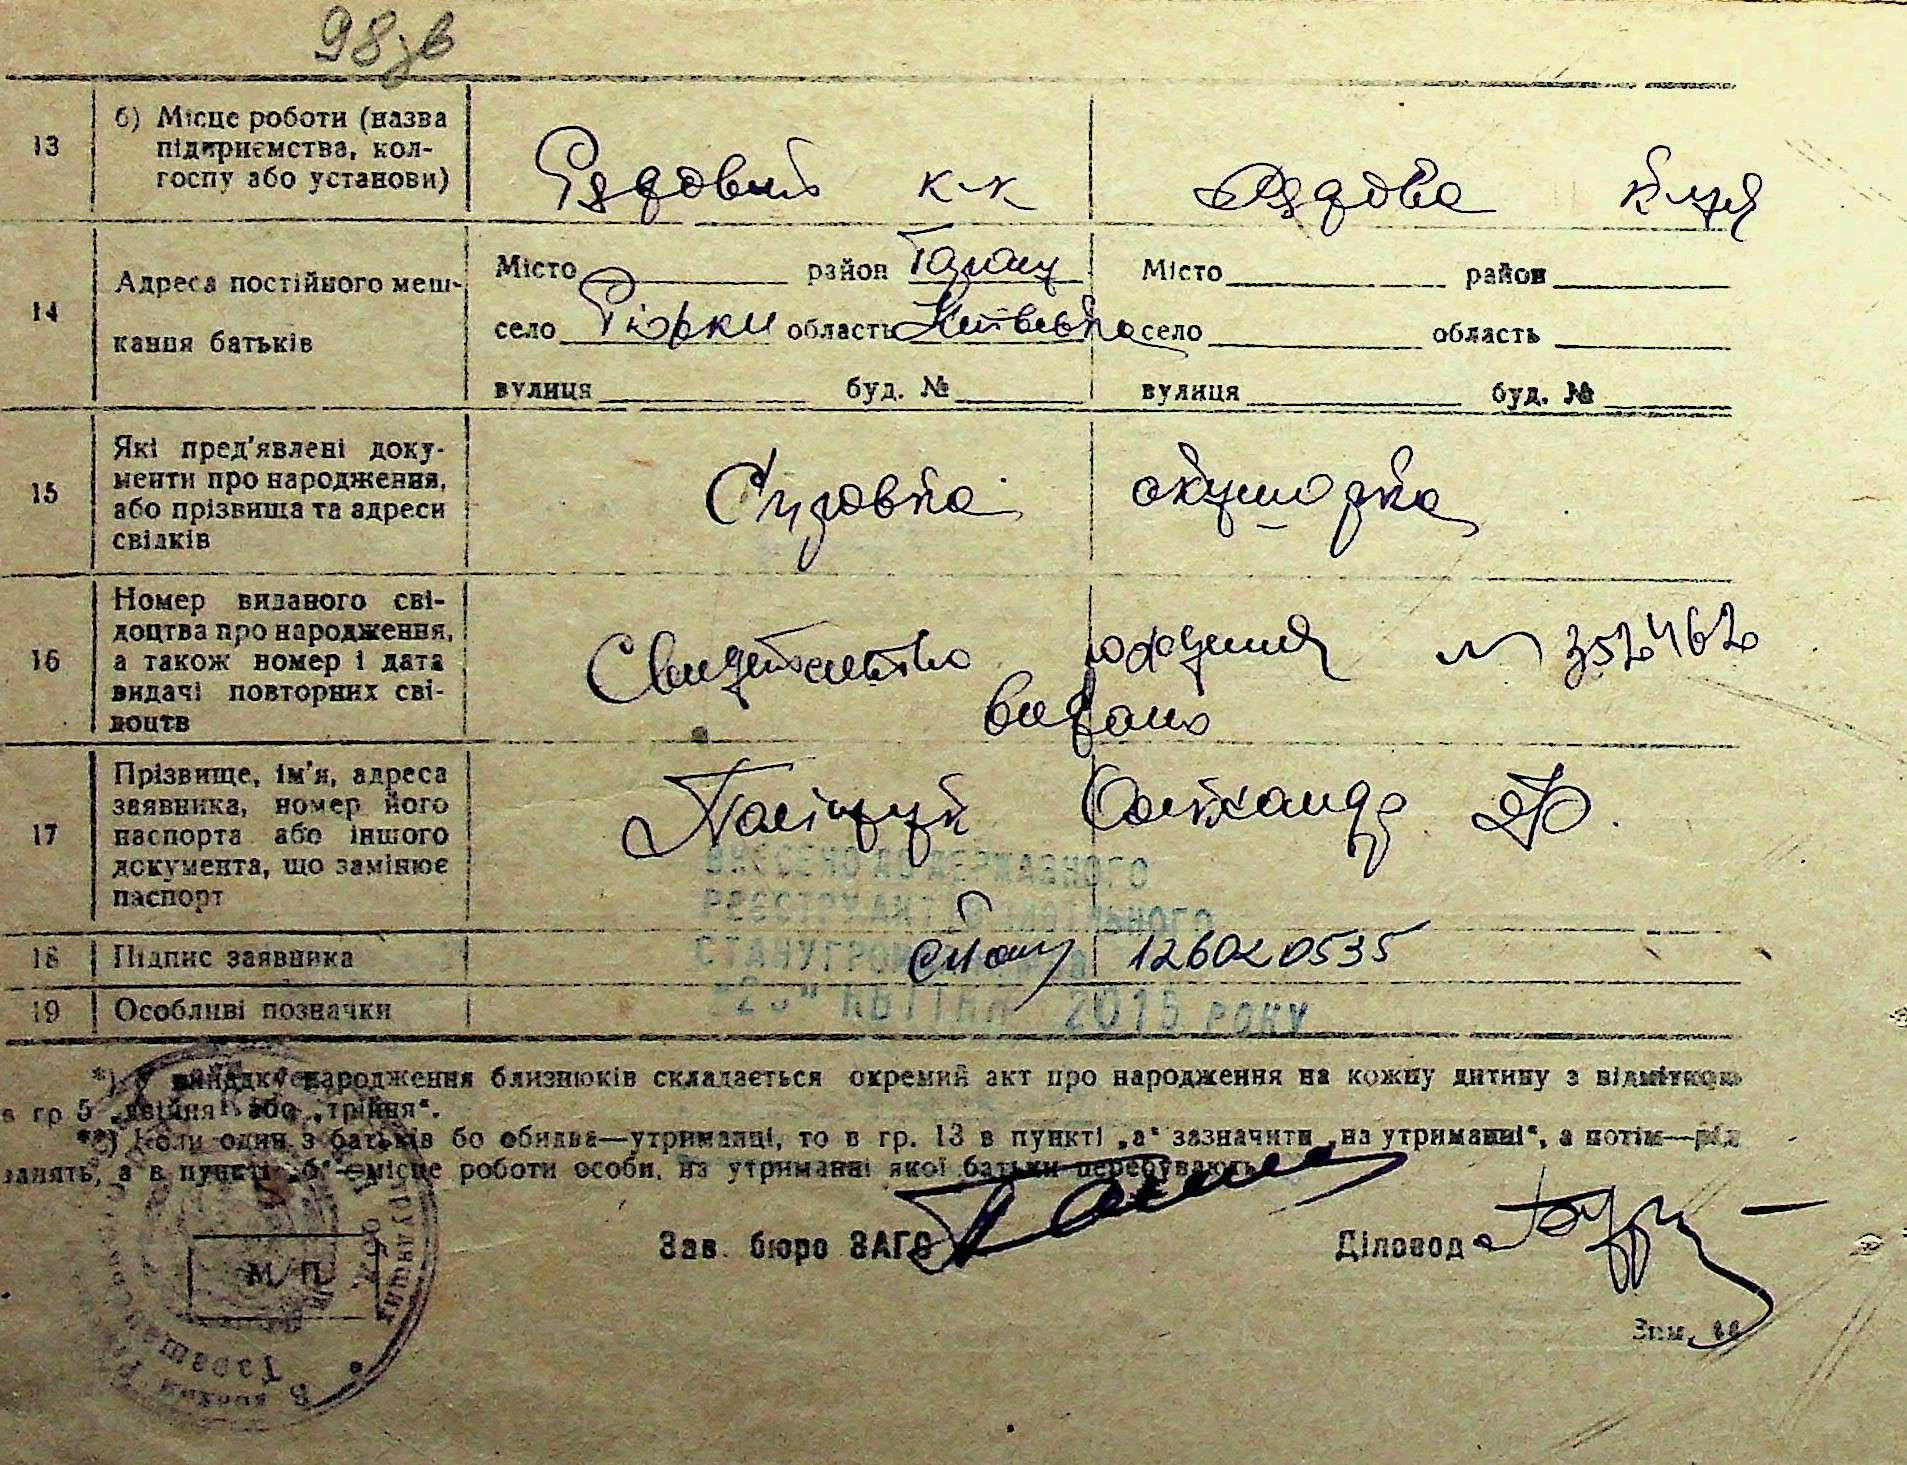 98зв
13 б) Місце роботи (назва підприємства, колгоспу або установи)
Рядовий к-к
Рядова
14 Адреса постійного мешкання батьків
Місто район Таращ Місто район
село Ріжки область Київська село область
вулиця буд. № вулиця буд. №
15 Які пред'явлені документи про народження, або прізвища та адреси свідків
акушорка
16 Номер виданого свідоцтва про народження, а також номер і дата видачі повторних свідоцтв
№ 352462
видано
17 Прізвище, ім'я, адреса заявника, номер його паспорта або іншого документа, що замінює паспорт
Поліщук Олександр
ВНЕСЕНО ДО ДЕРЖАВНОГО
РЕЄСТРУ АКТІВ ЦИВІЛЬНОГО
СТАНУ ГРОМАДЯН
КВІТНЯ 2015 РОКУ
18 Підпис заявника
1260220535
19 Особливі позначки
*) У випадку народження близнюків складається окремий акт про народження на кожну дитину з відміткою
в гр 5 „двійня" або „трійня".
**) Коли один з батьків бо обидва—утриманці, то в гр. 13 в пункті „а" зазначити „на утриманні", а потім—рід
занять, а в пункті „б"—місце роботи особи, на утриманні якої батьки перебувають
Зав. бюро ЗАГС
Діловод
М. П.
Зам.